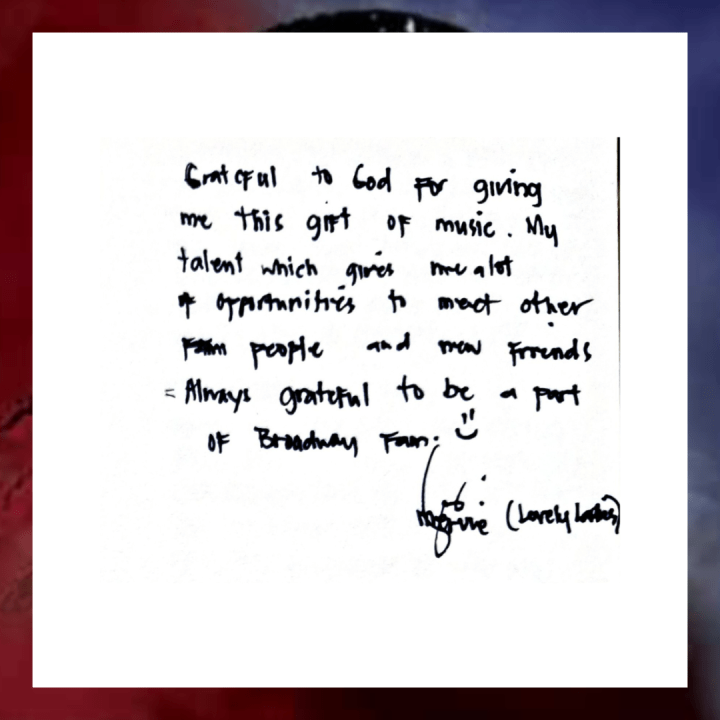 Grateful to God for giving
me this gift of music. My
talent which gives me a lot
of opportunities to meet other
people and new friends
= Always grateful to be a part
of Broadway Fam.
(Lovely Ladies)